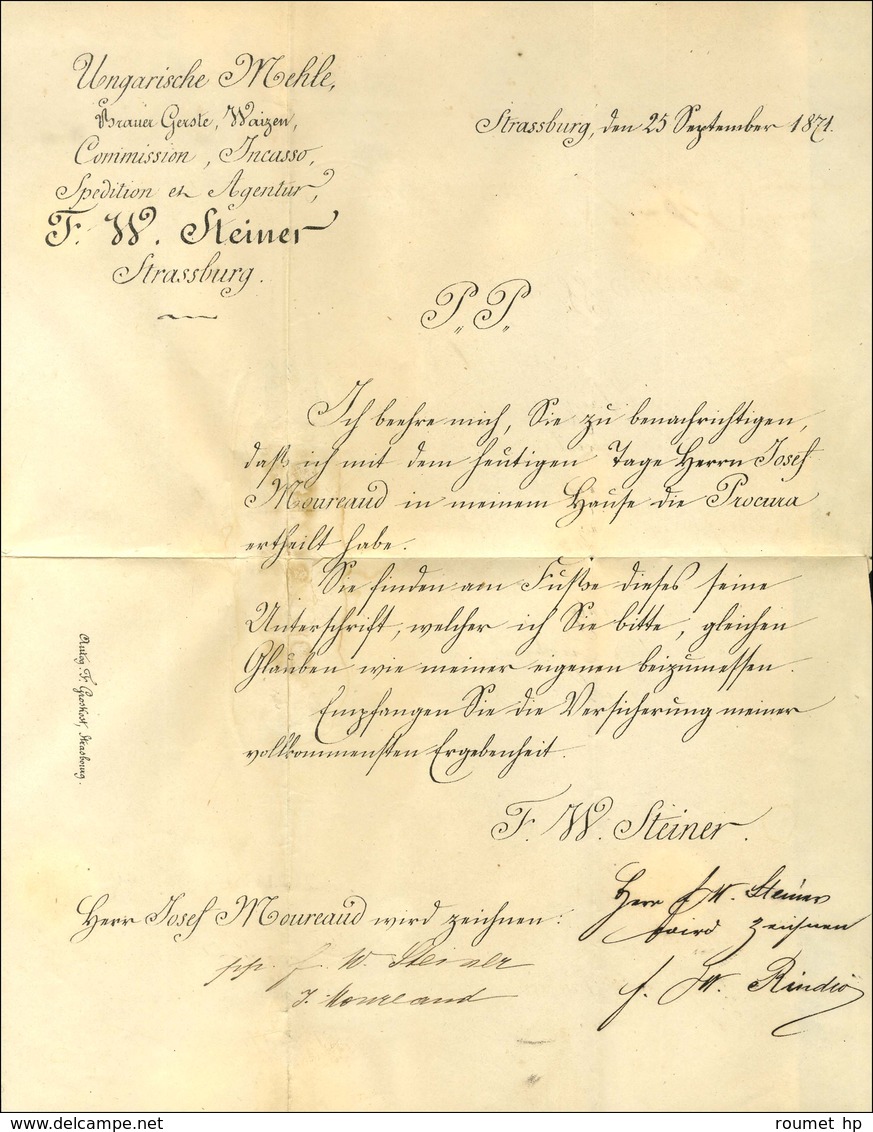 Ungarische Mehle,
Brauer Gerste, Waizen,
Commission, Incasso,
Spedition et Agentur,
F. W. Steiner
Strassburg.
Strassburg, den 25 September 1871.
P. P.
Ich beehre mich, Sie zu benachrichtigen,
daß ich mit dem heutigen Tage Herrn Josef
Moureaud in meinem Hause die Procura
ertheilt habe.
Sie finden am Fuße dieses seine
Unterschrift, welcher ich Sie bitte, gleichen
Glauben wie meiner eigenen beizumessen.
Empfangen Sie die Versicherung meiner
vollkommensten Ergebenheit.
F. W. Steiner.
Herr Josef Moureaud wird zeichnen:
pp. f. W. Steiner
J. Moureaud
Herr f. W. Steiner
wird zeichnen
f. W.
Autog. F. Groskost, Strasbourg.
delcampe.net
roumet hp